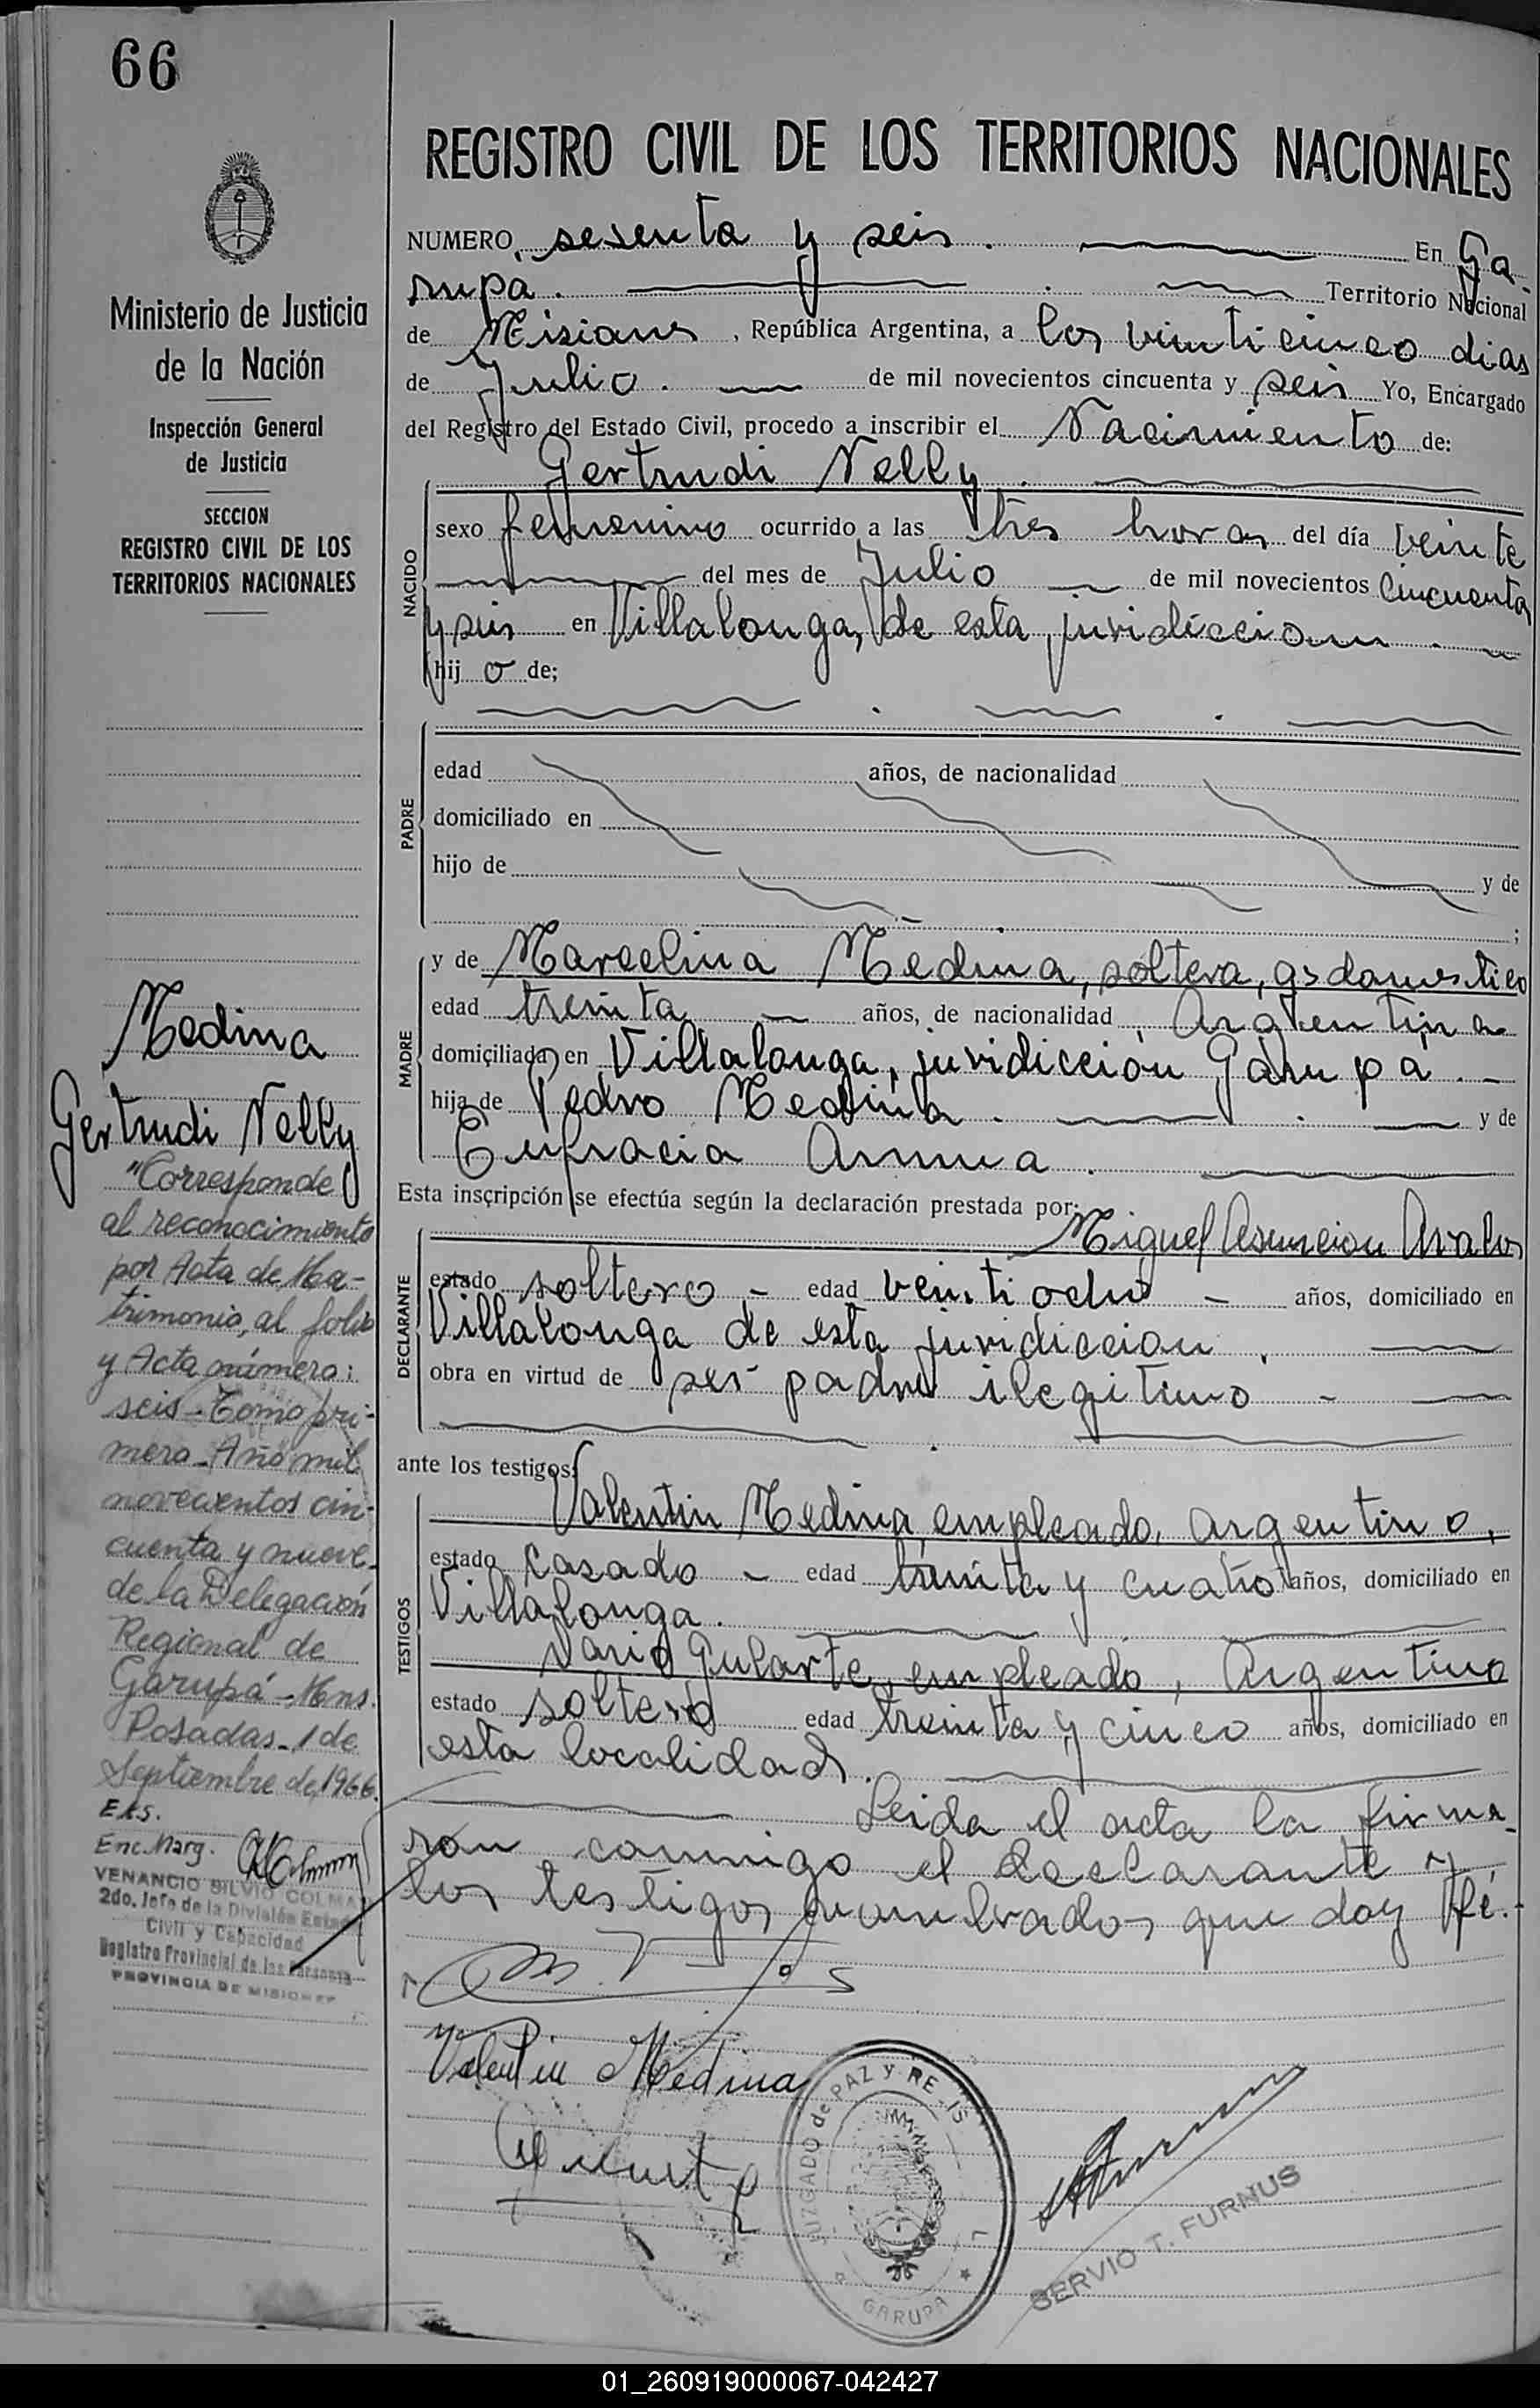 66
Ministerio de Justicia
de la Nación
Inspección General
de Justicia
SECCION
REGISTRO CIVIL DE LOS
TERRITORIOS NACIONALES
Medina
Gertrudi Nelly
"Corresponde
al reconocimiento
por Acta de Ma-
trimonio, al folio
y Acta número:
seis - Tomo pri-
mero - Año mil
novecientos cin-
cuenta y nueve -
de la Delegación
Regional de
Garupá - Mns.
Posadas - 1 de
Septiembre de 1966.
Enc. Marg.
VENANCIO SILVIO COLMA
2do. Jefe de la División Estado
Civil y Capacidad
Registro Provincial de las Personas
PROVINCIA DE MISIONES
REGISTRO CIVIL DE LOS TERRITORIOS NACIONALES
NUMERO sesenta y seis. En Ga-
rupa. Territorio Nacional
de Misiones, República Argentina, a los veinticinco dias
de Julio. de mil novecientos cincuenta y seis Yo, Encargado
del Registro del Estado Civil, procedo a inscribir el Nacimiento de:
Gertrudi Nelly.
NACIDO
sexo femenino ocurrido a las tres horas del día veinte
del mes de Julio de mil novecientos cincuenta
y seis en Villalonga, de esta juridiccion.
hij o de;
PADRE
edad años, de nacionalidad
domiciliado en
hijo de y de
;
MADRE
y de Marcelina Medina, soltera, qs domestico
edad treinta años, de nacionalidad, Argentina
domiciliada en Villalonga, juridicción Garupá. -
hija de Pedro Medina. y de
Eufracia
Esta inscripción se efectúa según la declaración prestada por:
Miguel Asuncion Avalos
DECLARANTE
estado soltero - edad veintiocho - años, domiciliado en
Villalonga de esta juridiccion.
obra en virtud de ser padre ilegitimo -
ante los testigos:
TESTIGOS
Valentin Medina, empleado, argentino,
estado casado - edad treinta y cuatro años, domiciliado en
Villalonga.
Dario Gularte, empleado, Argentino
estado soltero edad treinta y cinco años, domiciliado en
esta localidad.
Leida el acta la firma-
ron conmigo el declarante y
los testigos nombrados que doy fé.-
Valentin Medina
JUZGADO de PAZ y RE IS
GARUPA
SERVIO T. FURNUS
01_260919000067-042427